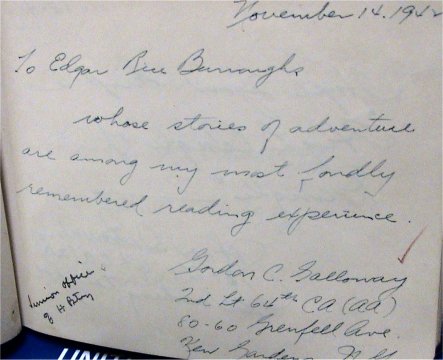 November 14, 1942
To Edgar Rice Burroughs
whose stories of adventure
are among my most fondly
remembered reading experience.
Gordon C. Galloway
2nd Lt 64th CA (AA)
80-60 Grenfell Ave.
Kew Gardens, N.Y.
Junior officer
of H Btry
UNI